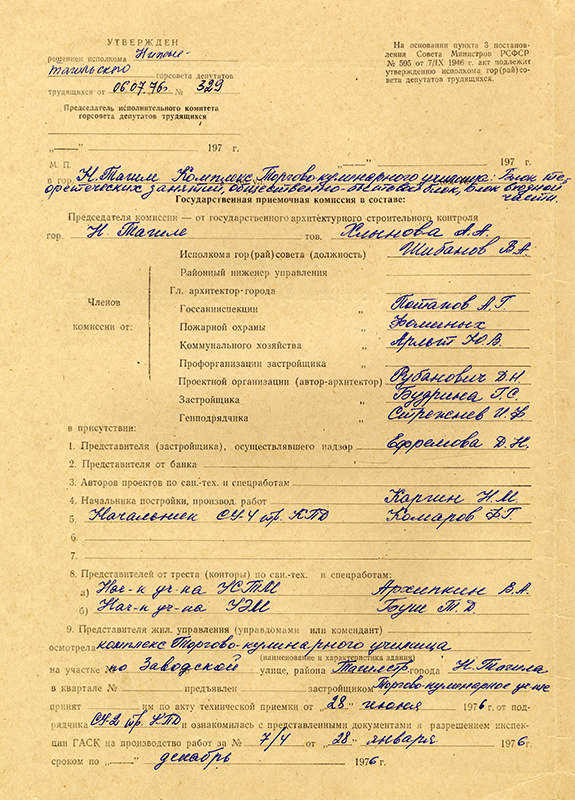 УТВЕРЖДЕН
решением исполкома Нижне-
тагильского горсовета депутатов
трудящихся от 06.07.76г № 329
Председатель исполнительного комитета
горсовета депутатов трудящихся
„——“ 197 г.
На основании пункта 3 постанов-
ления Совета Министров РСФСР
№ 595 от 7/IX 1946 г. акт подлежит
утверждению исполкома гор(рай)со-
вета депутатов трудящихся.
„——“ 197 г.
М. П.
в гор. Н. Тагиле Комплекс Торгово-кулинарного училища: Блок те-
оретических занятий, общественно-бытовой блок, Блок входной
части.
Государственная приемочная комиссия в составе:
Председателя комиссии — от государственного архитектурного строительного контроля
гор. Н. Тагиле тов. Хлынова А.А.
Исполкома гор(рай)совета (должность) Шибанов В.А.
Районный инженер управления
Гл. архитектор города
Членов комиссии от:
Госсанинспекции „ Потапов А.Г.
Пожарной охраны „ Фоминых
Коммунального хозяйства „ Арльт Ю.В.
Профорганизации застройщика „
Проектной организации (автор-архитектор) Рубанович Д.Н.
Застройщика „ Будрина Г.С.
Генподрядчика „ Стрежнев И.Ф.
в присутствии:
1. Представителя (застройщика), осуществлявшего надзор Ефремова Д.Н.
2. Представителя от банка
3. Авторов проектов по сан.-тех. и спецработам
4. Начальника постройки, производ. работ Каргин Н.М.
5. Начальник СУ-4 тр. КПД Комаров В.Г.
6.
7.
8. Представителей от треста (конторы) по сан.-тех. и спецработам:
а) Нач-к уч-ка УСТМ Архипкин В.А.
б) Нач-к уч-ка УЭМ Буш Т.Д.
9. Представителя жил. управления (управдомами или комендант)
осмотрела комплекс Торгово-кулинарного училища
(наименование и характеристика здания)
на участке № по Заводской улице, района Тагилстр. города Н. Тагила
в квартале № предъявлен застройщиком Торгово-кулинарное уч-ще
принят им по акту технической приемки от „28“ июня 1976 г. от под-
рядчика СУ-2 тр. КПД и ознакомилась с представленными документами и разрешением инспек-
ции ГАСК на производство работ за № 7/4 от „28“ января 1976 г.
сроком по „——“ декабрь 1976 г.